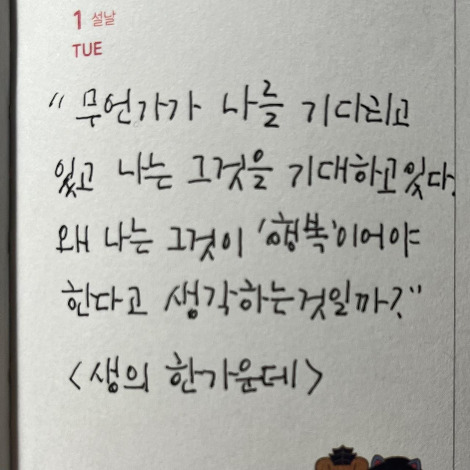 1 설날
TUE
“무언가가 나를 기다리고
있고 나는 그것을 기대하고있다.
왜 나는 그것이 '행복'이어야
한다고 생각하는것일까?”
<생의 한가운데>